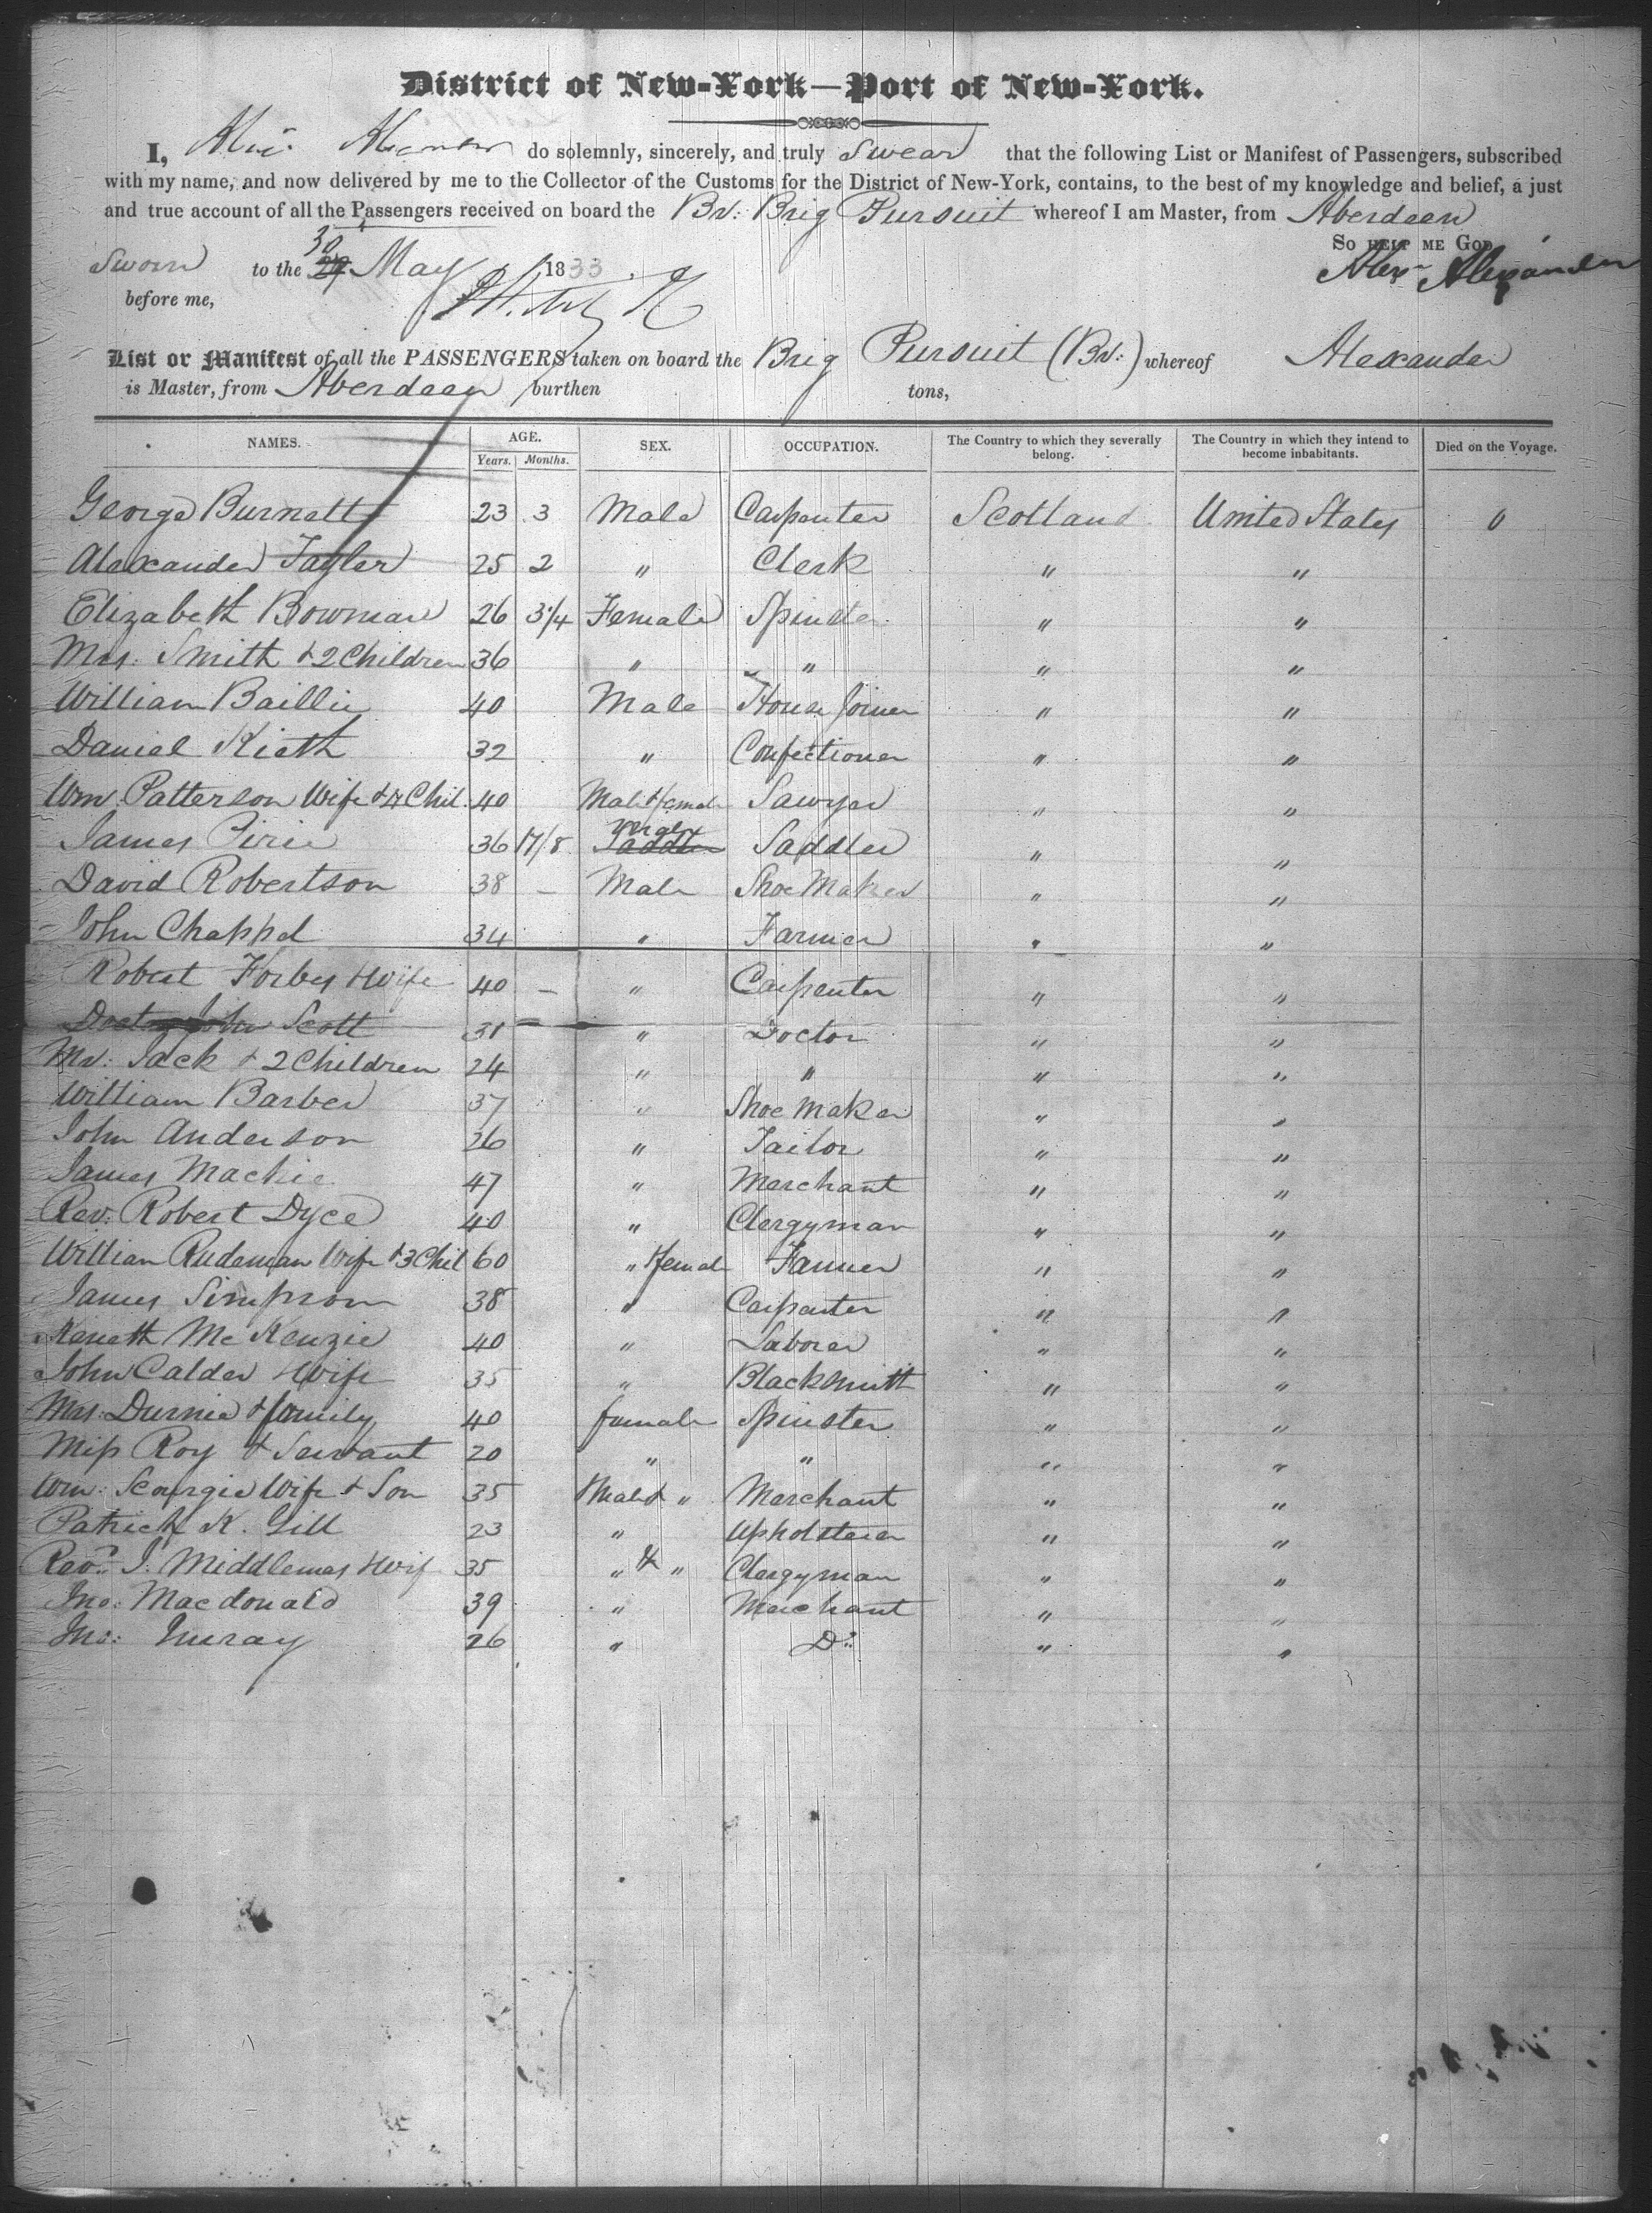 District of New-York—Port of New-York.
I, do solemnly, sincerely, and truly Swear that the following List or Manifest of Passengers, subscribed
with my name, and now delivered by me to the Collector of the Customs for the District of New-York, contains, to the best of my knowledge and belief, a just
and true account of all the Passengers received on board the Br: Brig Pursuit whereof I am Master, from Aberdeen
So help me God
Sworn to the 30 May 1833. Alexr Alexander
before me,
List or Manifest of all the PASSENGERS taken on board the Brig Pursuit (Br:) whereof Alexander
is Master, from Aberdeen burthen tons,
NAMES. AGE. SEX. OCCUPATION. The Country to which they severally belong. The Country in which they intend to become inhabitants. Died on the Voyage.
Years. Months.
George Burnett 23 3 Male Carpenter Scotland United States 0
Alexander Tayler 25 2 " Clerk " "
Elizabeth Bowman 26 3/4 Female Spinster " "
Mrs: Smith & 2 Children 36 " " " "
William Baillie 40 Male House Joiner " "
Daniel Kieth 32 " Confectioner " "
Wm. Patterson Wife & 4 Chil. 40 Male & femal Sawyer " "
James Pirie 36 Saddler " "
David Robertson 38 – Male Shoe Maker " "
John Chappel 34 " Farmer " "
Robert Forbes & Wife 40 – " Carpenter " "
Doctor John Scott 31 – " Doctor " "
Mr: Jack & 2 Children 24 " " " "
William Barber 37 " Shoe maker " "
John Anderson 26 " Tailor " "
James Mackie 47 " Merchant " "
Rev: Robert Dyce 40 " Clergyman " "
William Rudeman Wife & 3 Chil 60 " & female Farmer " "
James Simpson 38 " Carpenter " "
Keneth McKenzie 40 " Laborer " "
John Calder & Wife 35 " Blacksmith " "
Mrs: Durnie & family 40 female Spinster " "
Miss Roy & Servant 20 " " " "
Wm: Scourgie Wife & Son 35 Male & " Merchant " "
Patrick K. Gill 23 " Upholsterer " "
Revd. J. Middlemas & Wif 35 " & " Clergyman " "
Jno: Macdonald 39 " Merchant " "
Jno: Inray 26 " Do: " "